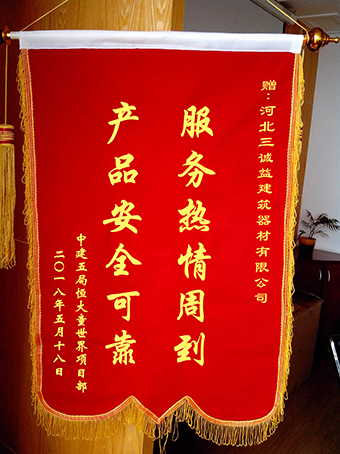 赠：河北三诚益建筑器材有限公司
服务热情周到
产品安全可靠
中建五局恒大童世界项目部
二〇一八年五月十八日